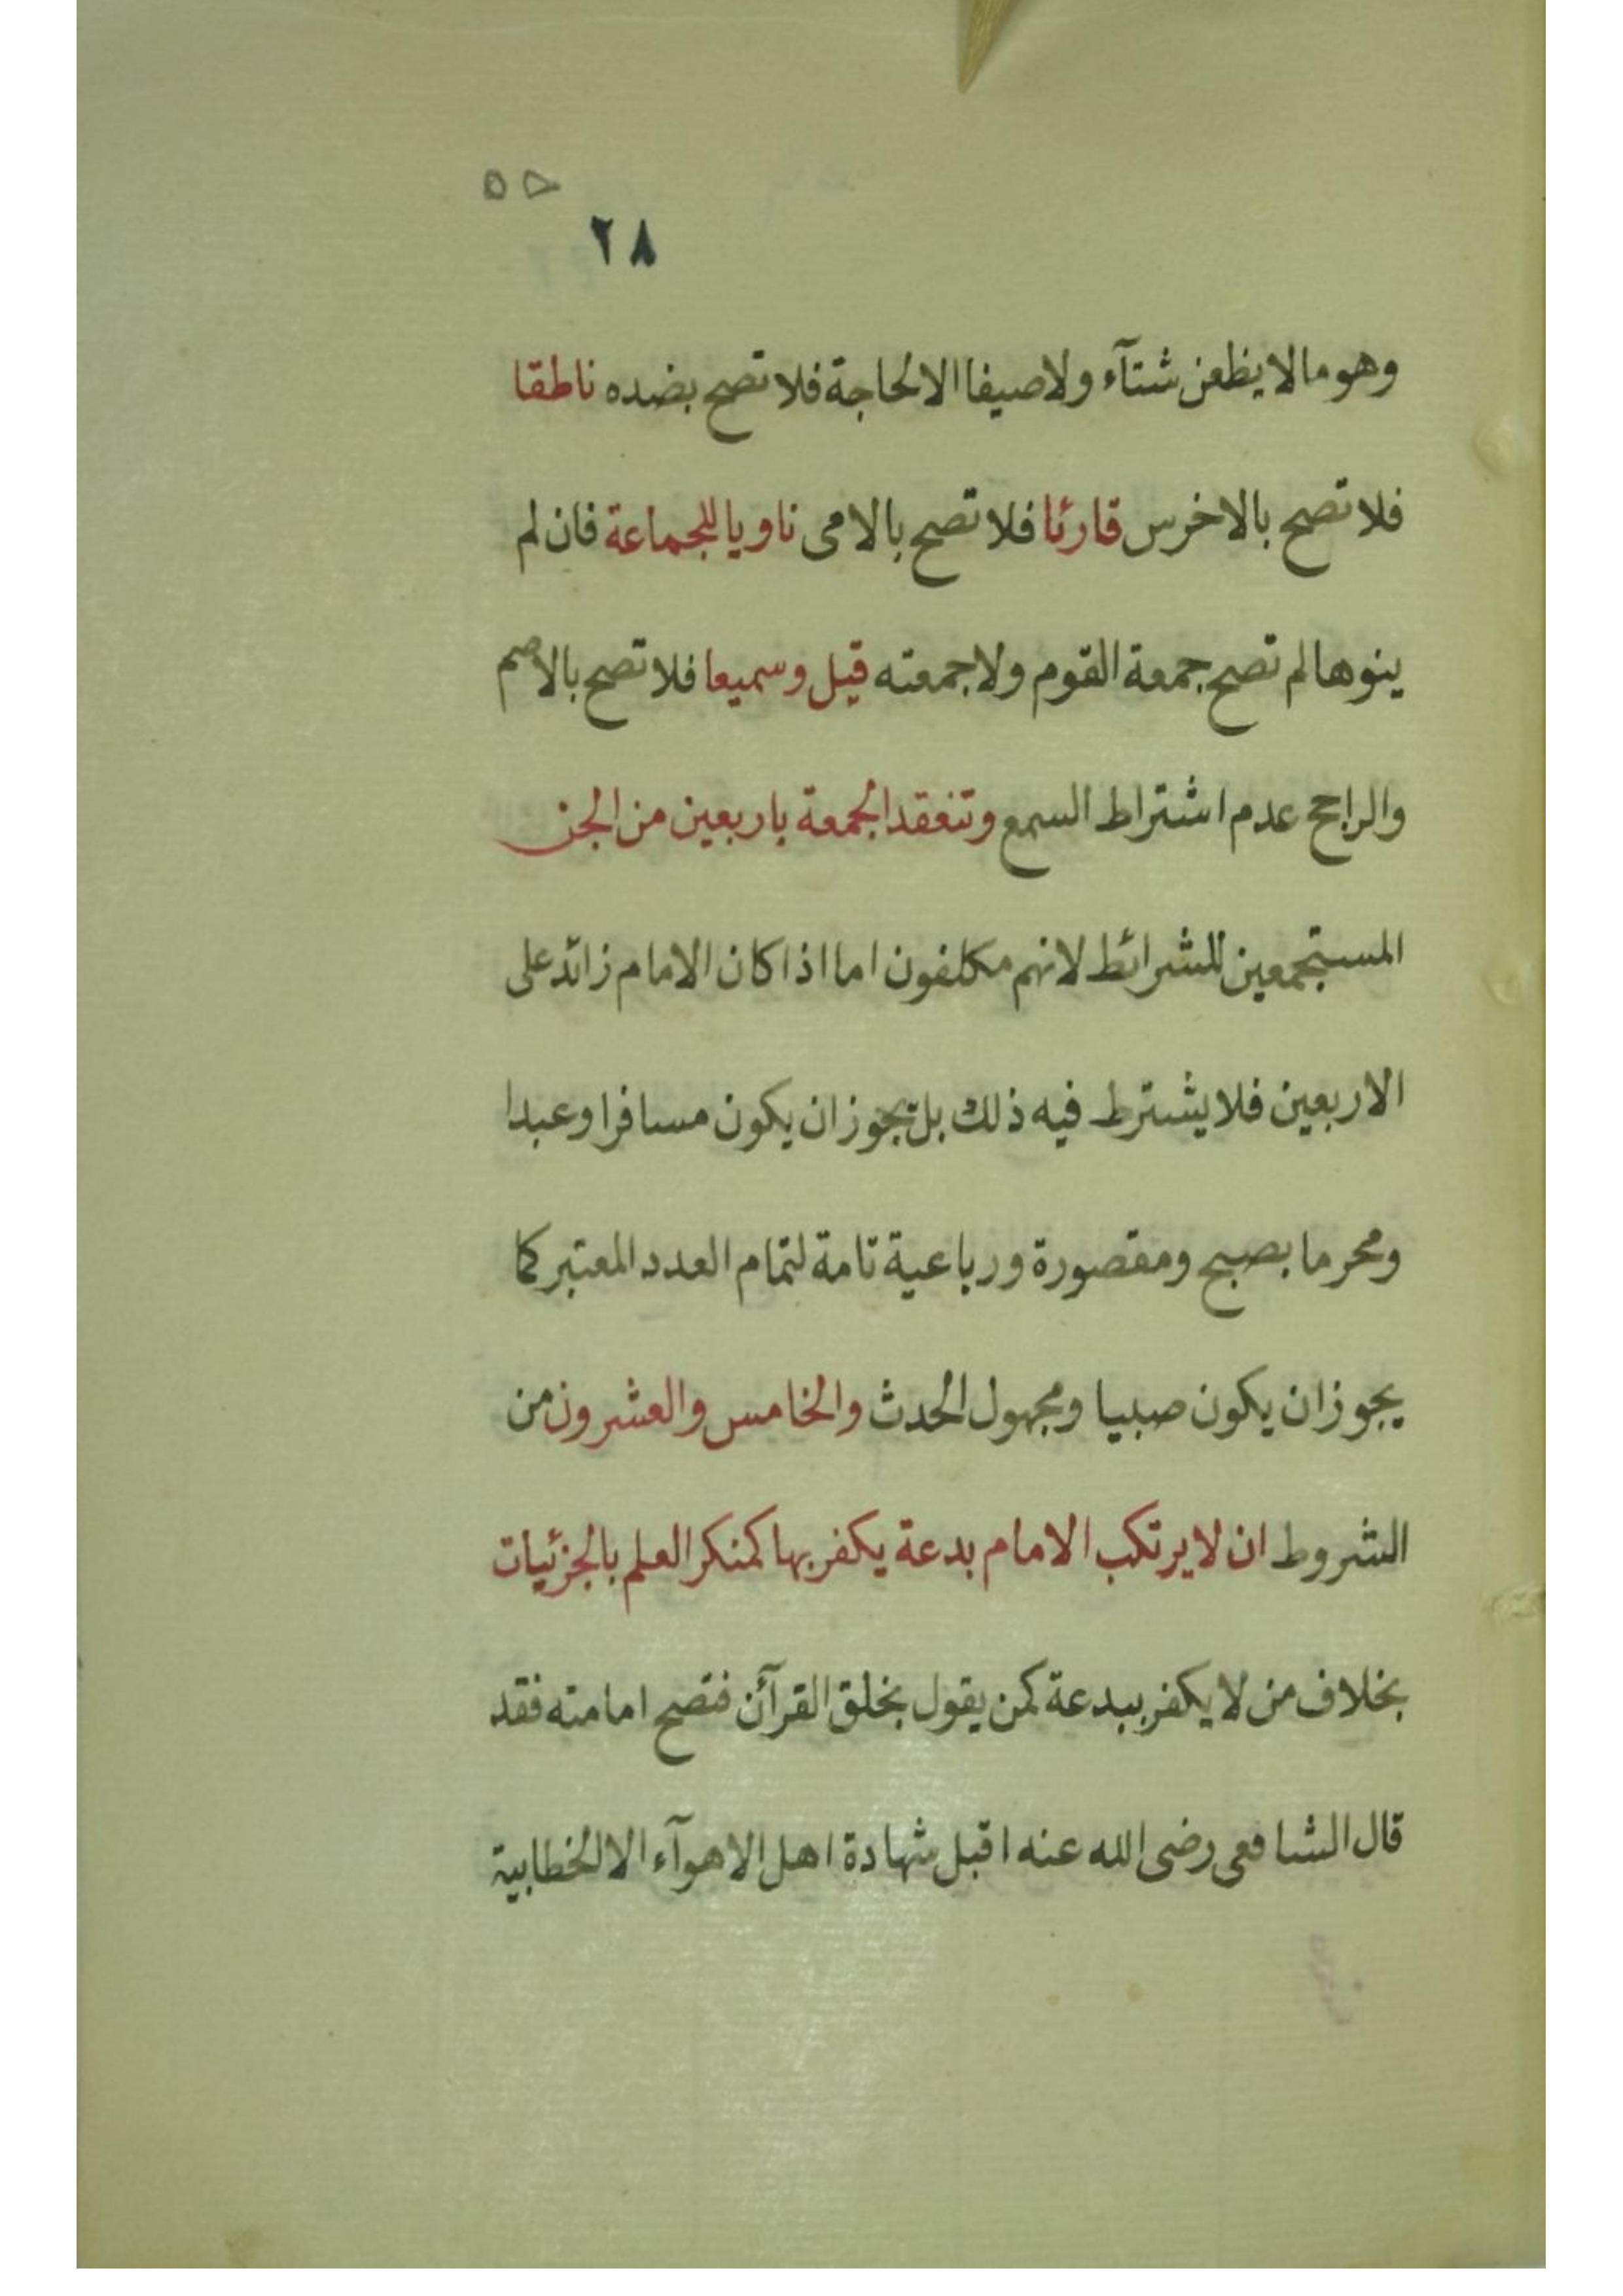 ٥٥
٢٨
وهو مالا يظعن شتآء ولا صيفا الا لحاجة فلا تصح بضده ناطقا
فلا تصح بالاخرس قارئا فلا تصح بالامى ناويا للجماعة فان لم
ينوها لم تصح جمعة القوم ولا جمعته قيل وسميعا فلا تصح بالاصم
والراجح عدم اشتراط السمع وتنعقد الجمعة باربعين من الجن
المستجمعين للشرائط لانهم مكلفون اما اذا كان الامام زائد على
الاربعين فلا يشترط فيه ذلك بل يجوز ان يكون مسافرا وعبدا
ومحرما بصبح ومقصورة ورباعية تامة لتمام العدد المعتبر كما
يجوز ان يكون صبيا ومجهول الحدث والخامس والعشرون من
الشروط ان لا يرتكب الامام بدعة يكفر بها كمنكر العلم بالجزئيات
بخلاف من لا يكفر ببدعة كمن يقول بخلق القرآئن فتصح امامته فقد
قال الشافعى رضى الله عنه اقبل شهادة اهل الاهوآء الا الخطابية